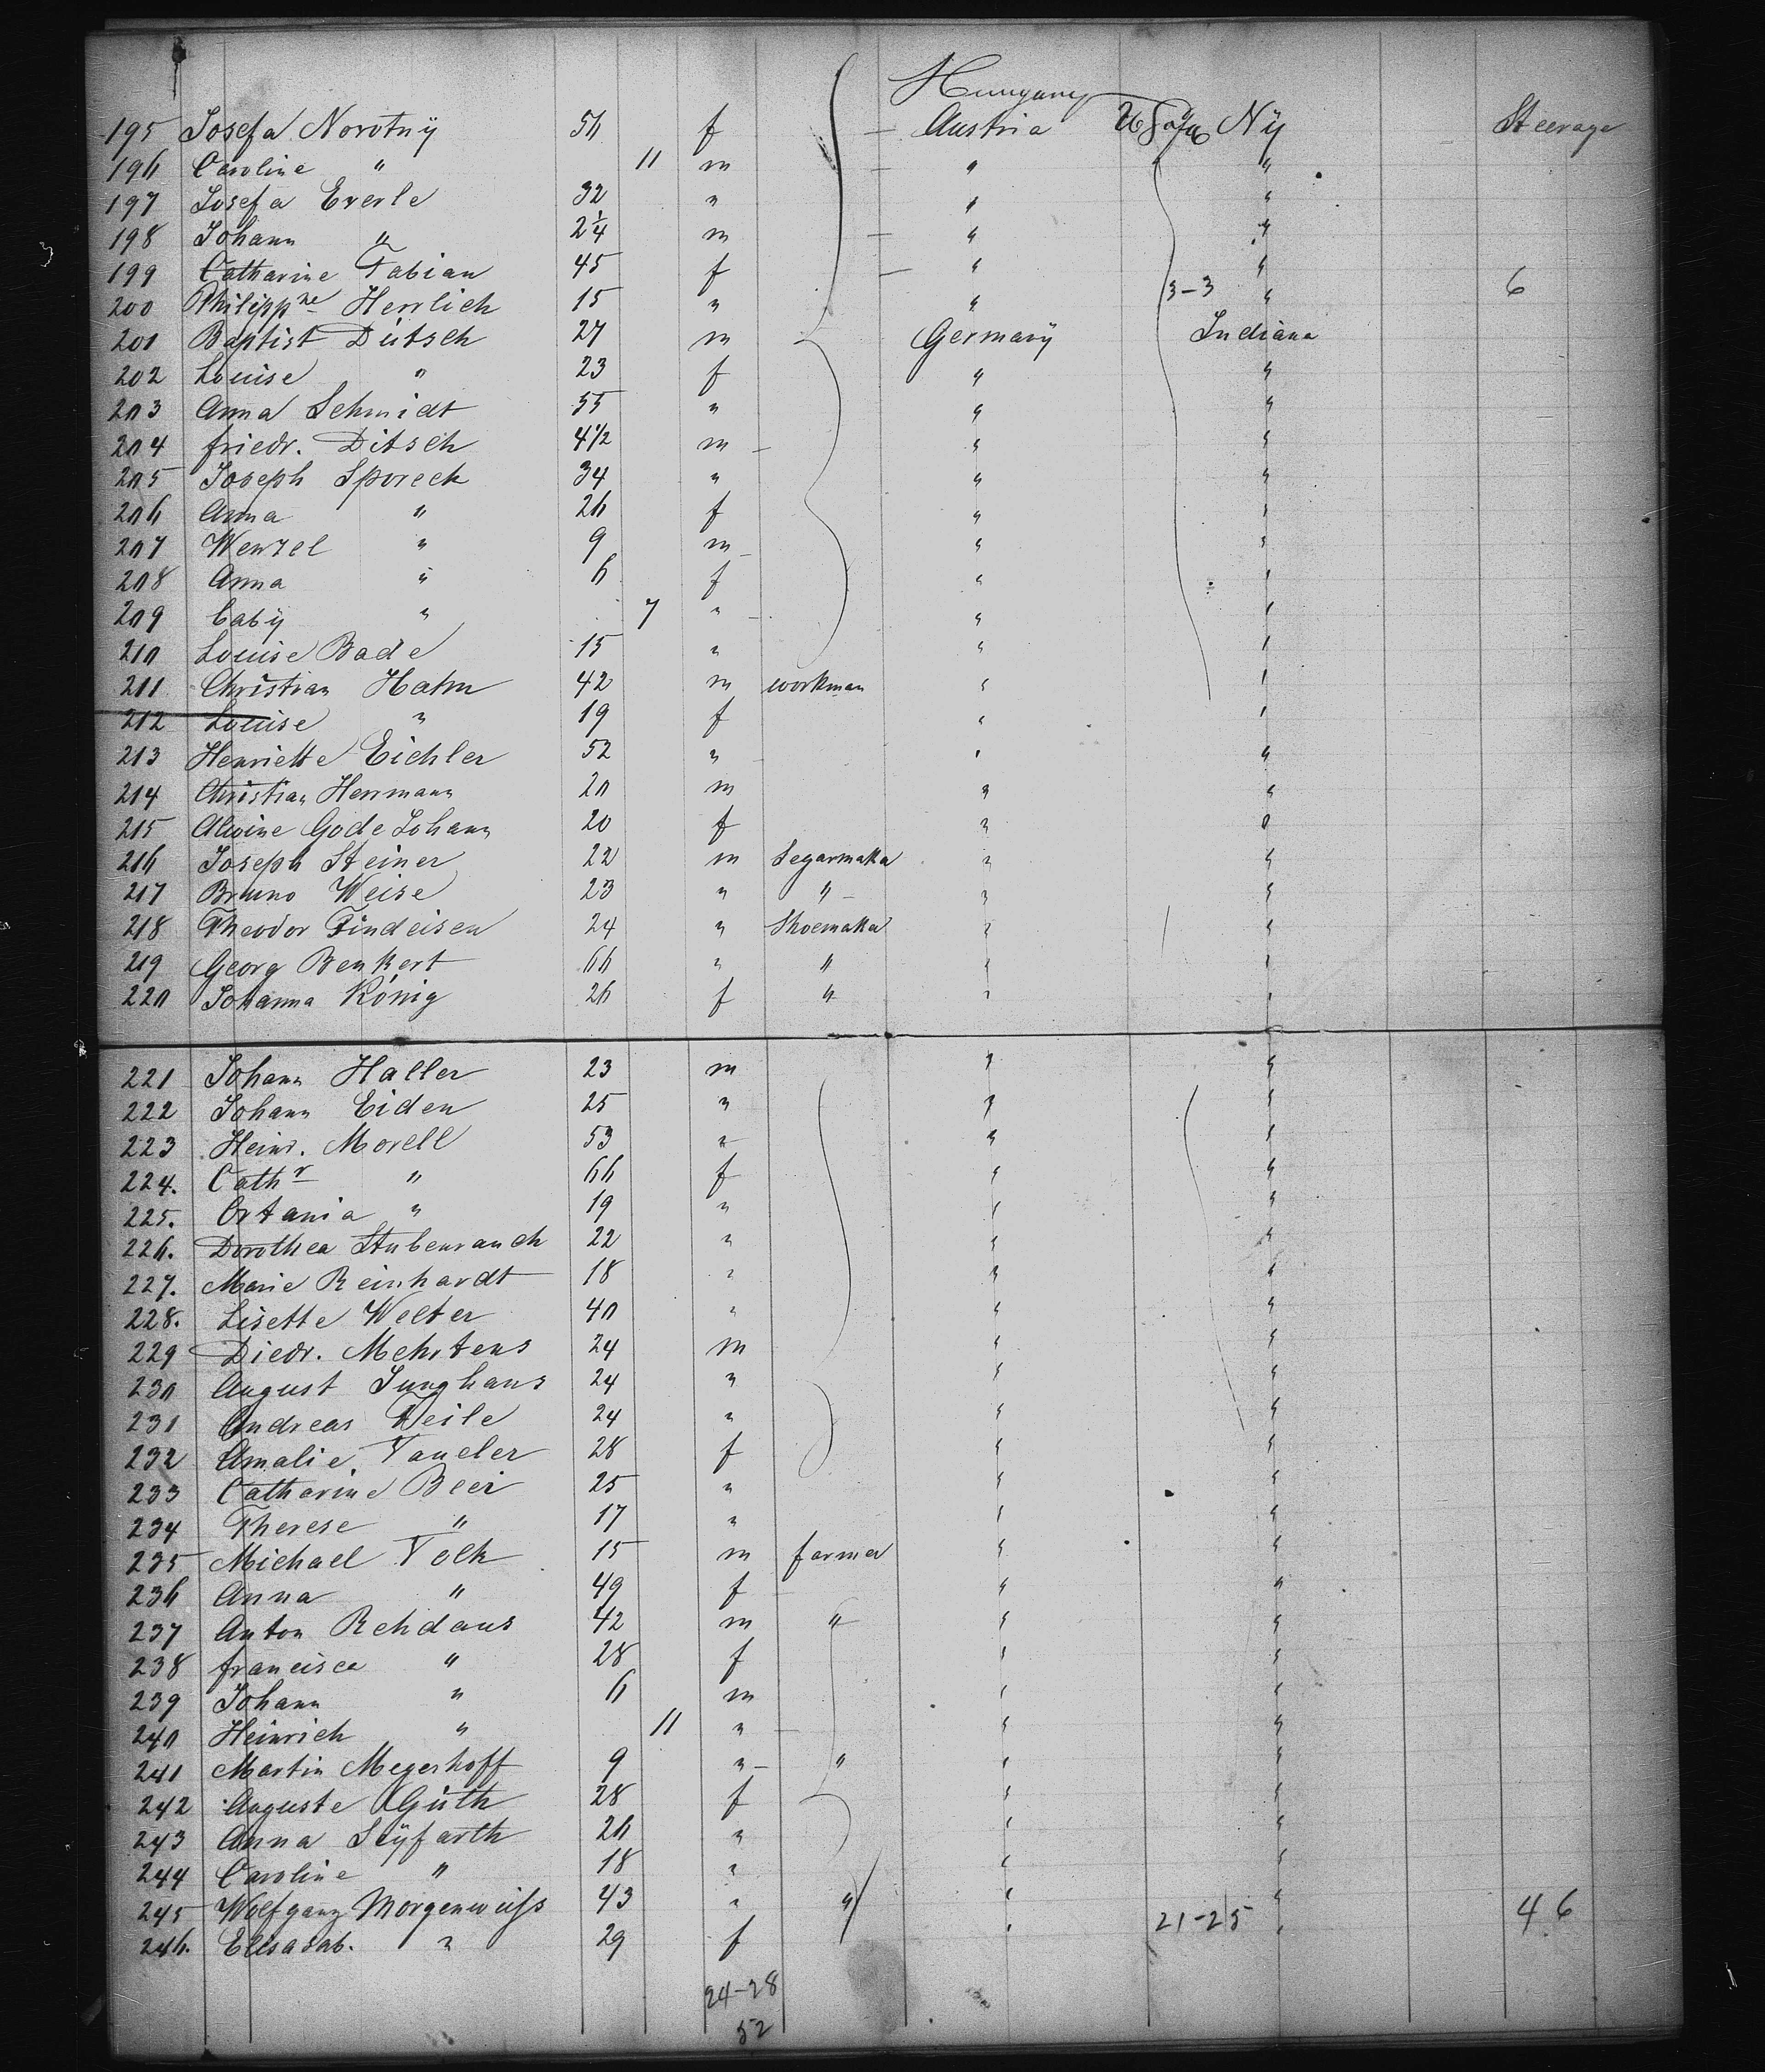 Hungary
195 Josefa Novotnÿ 56 f – Austria NÿSteerage
196 Caroline " 11 m – " "
197 Josefa Everle 32 " " "
198 Johann " 2¼ m – " "
199 Catharine Fabian 45 f – " "
200 Philippne Herrlich 15 " " 3-3 " 6
201 Baptist Dütsch 27 m Germanÿ Indiana
202 Louise " 23 f " "
203 Anna Schmidt 55 " " "
204 friedr. Ditsch 4½ m – " "
205 Joseph Sporeck 34 " " "
206 Anna " 26 f " "
207 Wenzel " 9 m – " "
208 Anna " 6 f " "
209 babÿ " 7 " – " "
210 Louise Bade 15 " " "
211 Christian Hahn 42 m workman " "
212 Louise " 19 f " "
213 Henriette Eichler 52 " " "
214 Christian Herrmann 20 m " "
215 Alwine Gode Johann 20 f " "
216 Joseph Steiner 22 m Segarmaka " "
217 Bruno Weise 23 " " " "
218 Theodor Findeisen 24 " Shoemaka " "
219 Georg Benkert 66 " " " "
220 Johanna König 26 f " " "
221 Johann Haller 23 m " "
222 Johann Eiden 25 " " "
223 Heinr. Morell 53 " " "
224. Cathr " 66 f " "
225. Ortania " 19 " " "
226. Dorothea Stubenrauch 22 " " "
227. Marie Reinhardt 18 " " "
228. Lisette Welter 40 " " "
229 Diedr. Mehrtens 24 m " "
230 August Junghans 24 " " "
231 Andreas Feile 24 " " "
232 Amalie Taucler 28 f " "
233 Catharine Beer 25 " " "
234 Therese " 17 " " "
235 Michael Volk 15 m farmer " "
236 Anna " 49 f – " "
237 Anton Rehdans 42 m " " "
238 francisca " 28 f " "
239 Johann " 6 m " "
240 Heinrich " 11 " – " "
241 Martin Meyerhoff 9 " – " " "
242 Auguste Güth 28 f " "
243 Anna Seÿfarth 26 " " "
244 Caroline " 18 " " "
245 Wolfgang Morgenweiss 43 " " " " 46
246. Elisasab. " 29 f " 21-25 "
24-28
52